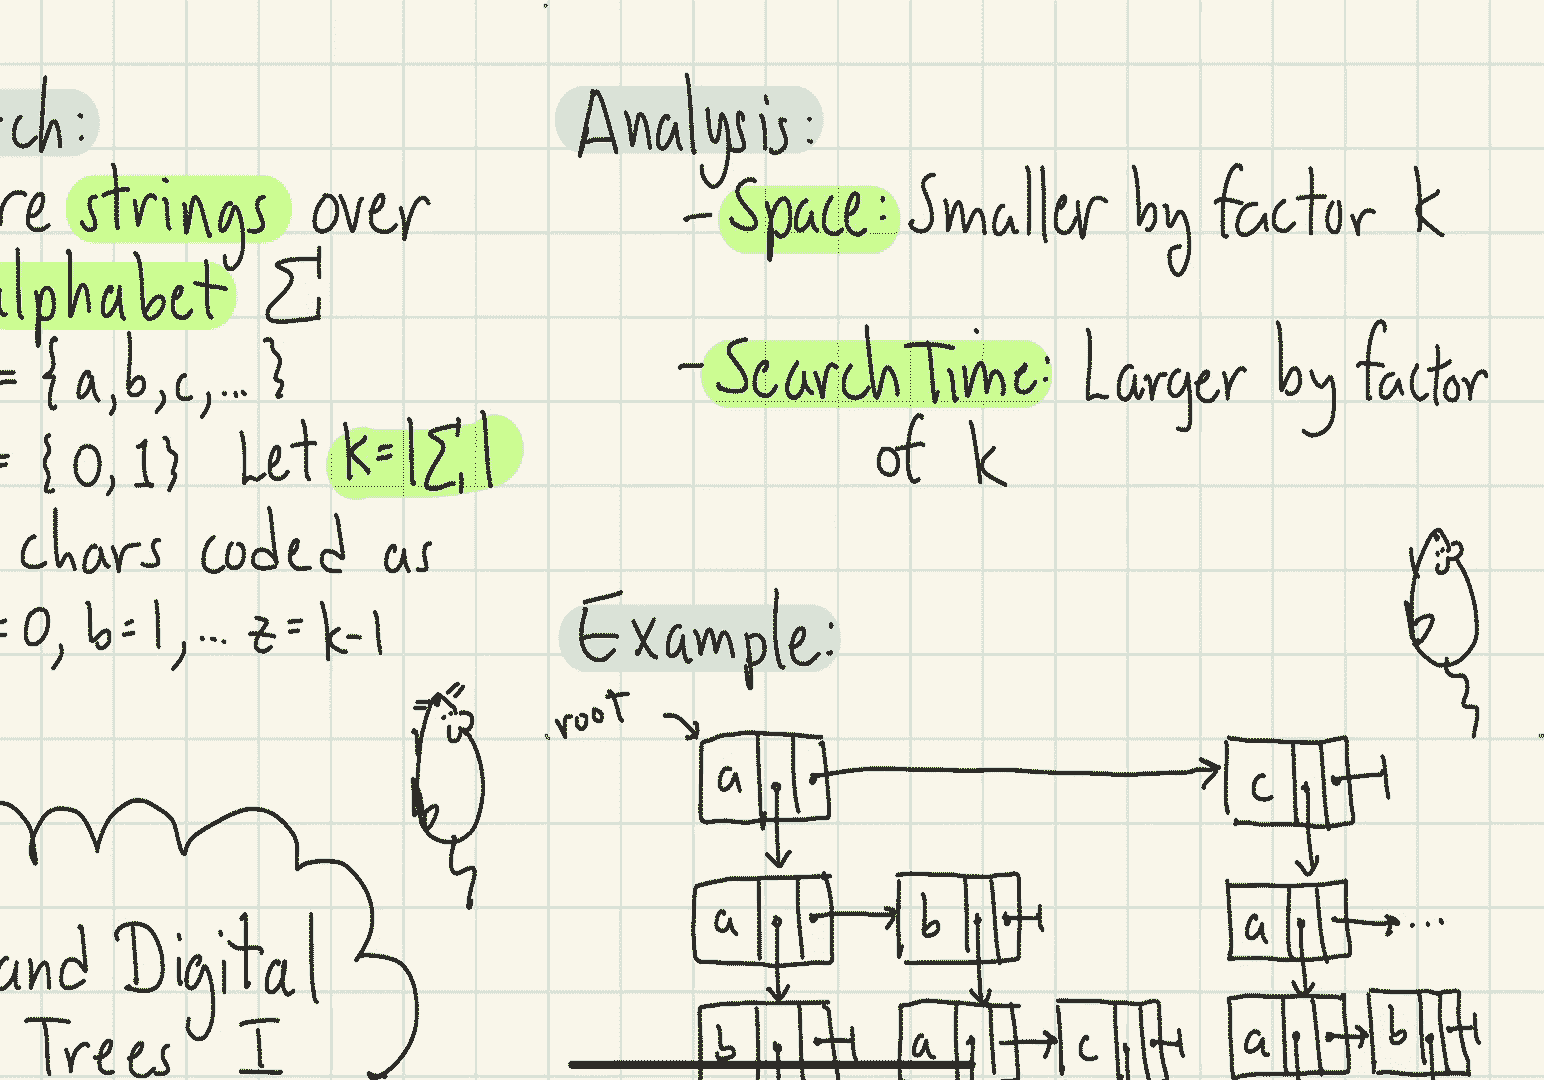 ch:
re strings over
alphabet Σ
= {a,b,c,...}
= {0,1} Let k=|Σ|
chars coded as
= 0, b=1, ... z= k-1
and Digital
Trees I
Analysis:
- Space: Smaller by factor k
- Search Time: Larger by factor
of k
Example:
root
a c
a b a ...
b a c a b